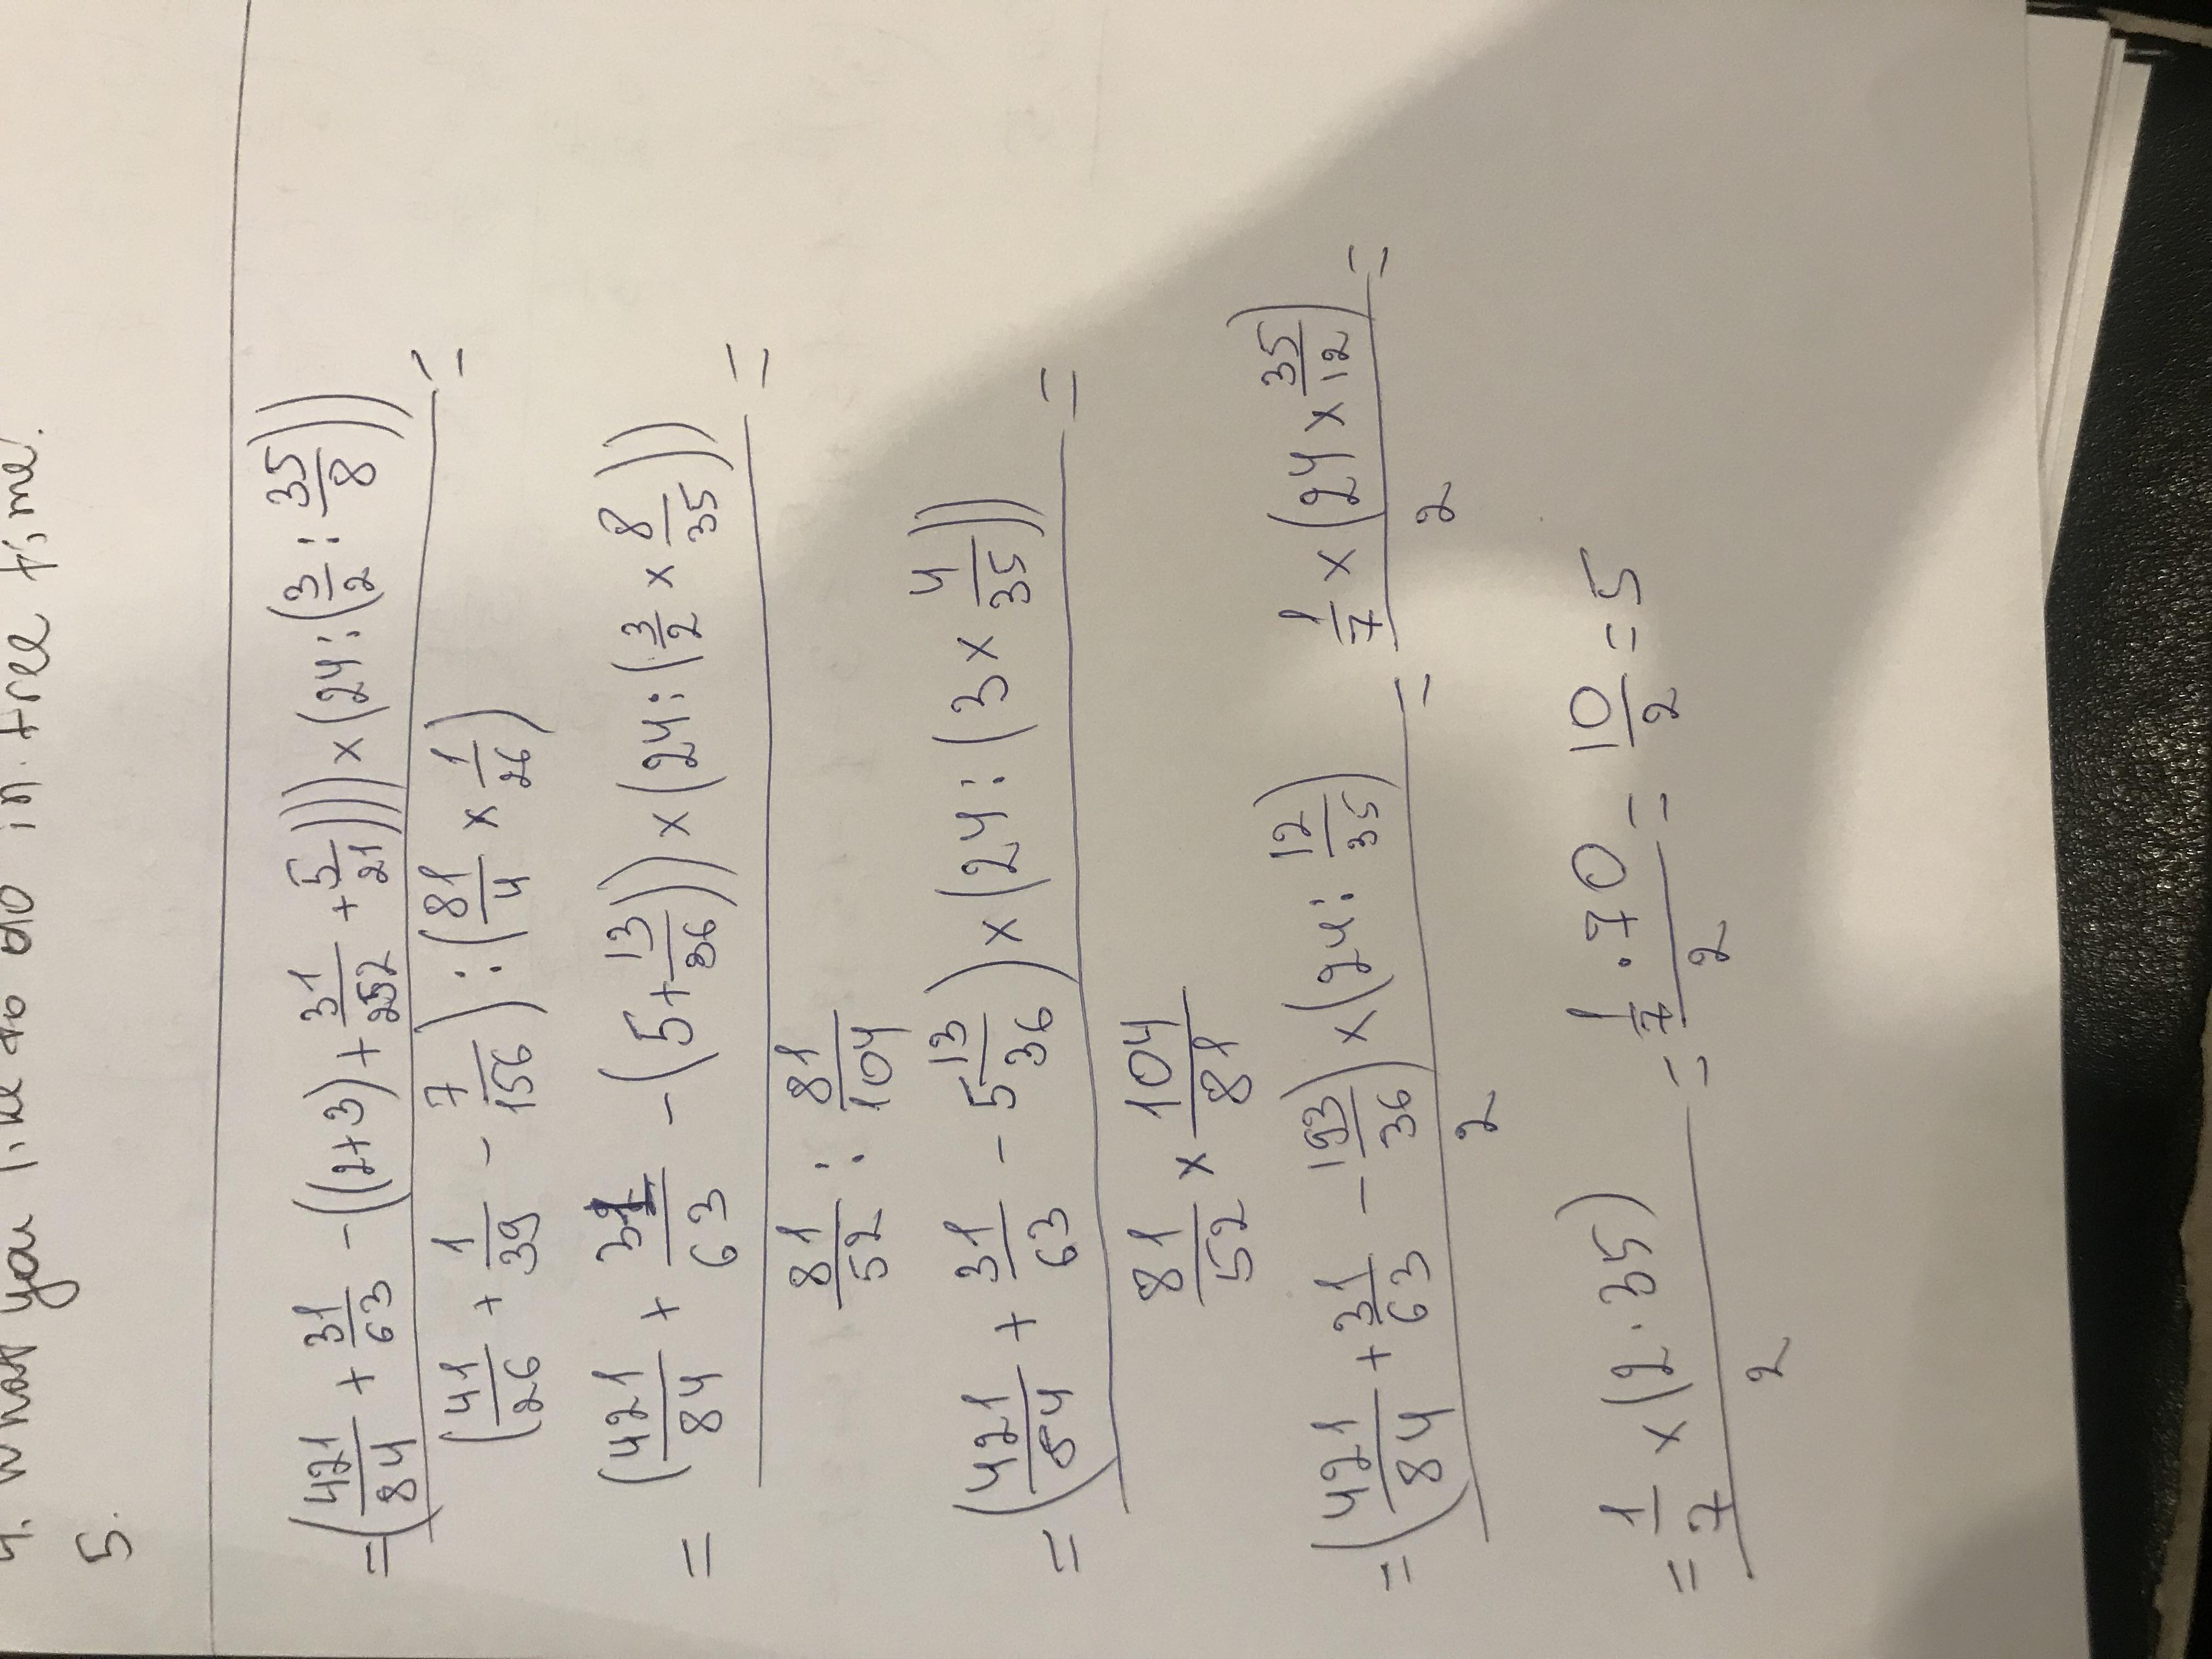 4. What you like to do in free time.
5.
=(421/84 + 31/63 - ((2+3) + 31/252 + 5/21))) × (24 : (3/2 : 35/8)))
(41/26 + 1/39 - 7/156) : (81/4 × 1/26) =
= (421/84 + 31/63 - (5 + 13/36)) × (24 : (3/2 × 8/35))) =
81/52 : 81/104
= (421/84 + 31/63 - 5 13/36) × (24 : (3 × 4/35)) =
81/52 × 104/81
= (421/84 + 31/63 - 193/36) × (24 : 12/35) / 2 = 1/7 × (24 × 35/12) / 2 =
= 1/7 × (2 · 35) / 2 = 1/7 · 70 / 2 = 10/2 = 5